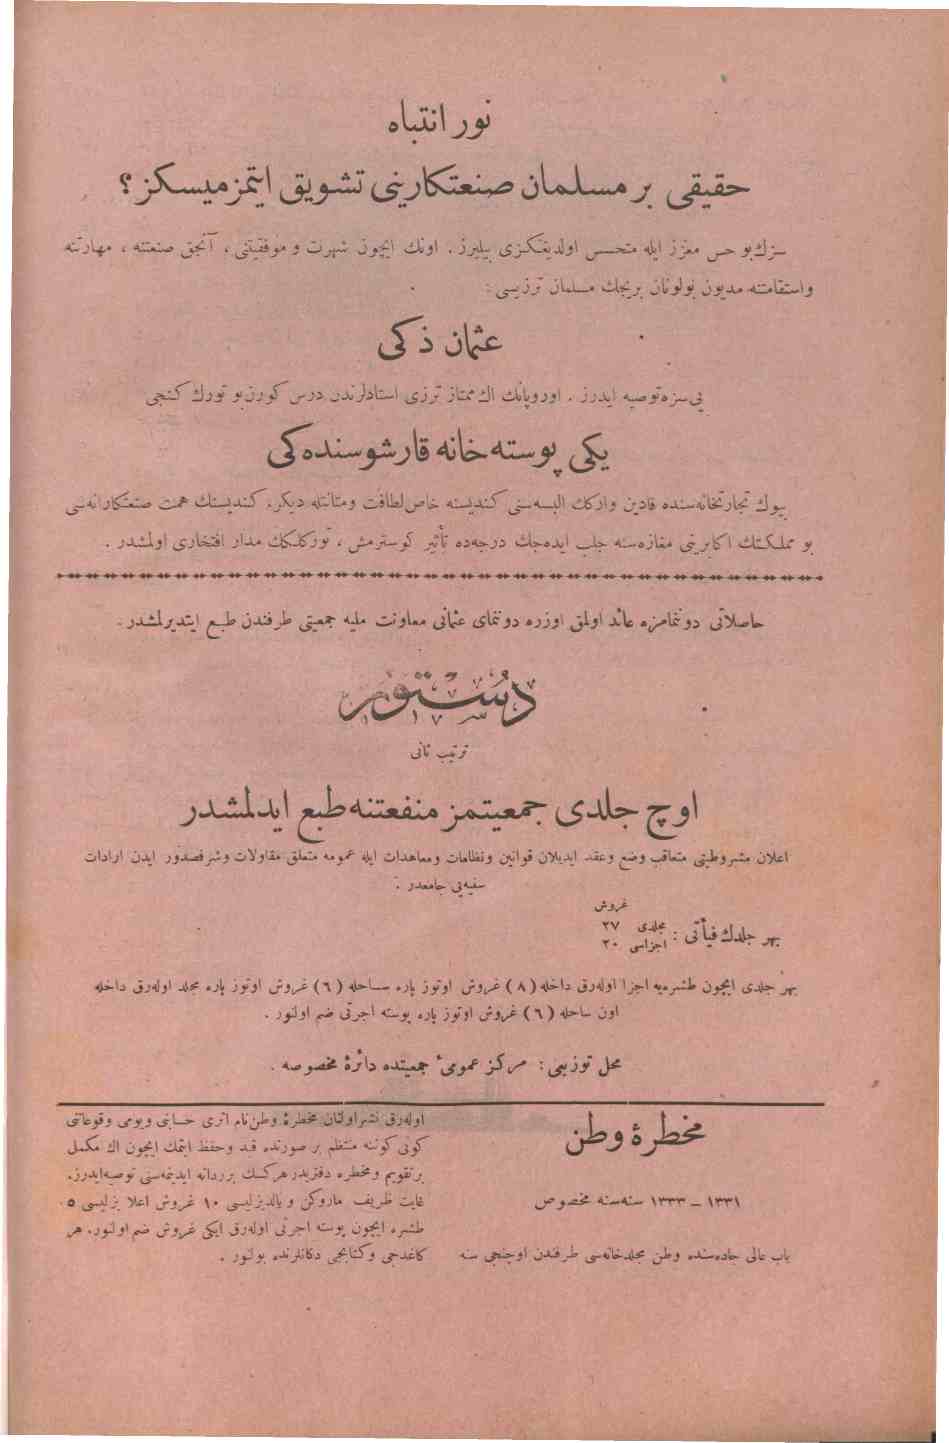 نور انتباه
حقیقی بر مسلمان صنعتکارینی تشویق ایتمزمیسکز؟
سزك بو حس معزز ایله متحسس اولدیغکزی بیلیرز . اونك ایچون شهرت و موفقیتنی ، آنجق صنعتنه ، مهارتنه
واستقامتنه مدیون بولونان بریجك مسلمان ترزیسی :
عثمان ذکی
یی سزه توصیه ایدرز . اوروپانك اك ممتاز ترزی استادلرندن درس کورن بو تورك کنجی
یکی پوسته خانه قارشوسنده کی
بیوك تجارتخانه سنده قادین وارکك البسه سنی کندیسنه خاص لطافت ومتانتله دیکر. کندیسنك همت صنعتکارانه سی
بو مملکتك اکابرینی مغازه سنه جلب ایده جك درجه ده تأثیر کوسترمش ، تورکلکك مدار افتخاری اولمشدر .
حاصلاتی دوننمامزه عائد اولمق اوزره دوننمای عثمانی معاونت ملیه جمعیتی طرفندن طبع ایتدیرلمشدر .
دستور
ترتیب ثانی
اوچ جلدی جمعیتمز منفعتنه طبع ایدلمشدر
اعلان مشروطیتی متعاقب وضع وعقد ایدیلان قوانین ونظامات ومعاهدات ایله عمومه متعلق مقاولات وشرفصدور ایدن ارادات
سنیه یی جامعدر .
غروش
بهر جلدك فیأتی : مجلدی ۲۷
اجزاسی ۲۰
بهر جلدی ایچون طشره یه اجزا اوله رق داخله (۸) غروش اوتوز پاره ساحله (٦) غروش اوتوز پاره مجلد اوله رق داخله
اون ساحله (٦) غروش اوتوز پاره پوسته اجرتی ضم اولنور .
محل توزیعی : مرکز عمومیٔ جمعیتده دائرهٔ مخصوصه .
مخطرهٔ وطن
۱۳۳۱ – ۱۳۳۳ سنه سنه مخصوص
باب عالی جاده سنده وطن مجلدخانه سی طرفندن اوچنجی سنه
اوله رق نشر اولنان مخطرهٔ وطن نام اثری حسابی ویومی وقوعاتی
کونی کوننه منتظم بر صورتده قید وحفظ ایتمك ایچون اك مکمل
بر تقویم ومخطره دفتریدر هرکسك بر دانه ایدینمه سنی توصیه ایدرز.
غایت ظریف ماروکن و یالدیزلیسی ۱۰ غروش اعلا بزلیسی ٥
طشره ایچون پوسته اجرتی اوله رق ایکی غروش ضم اولنور. هر
کاغدجی وکتابجی دکانلرنده بولنور .